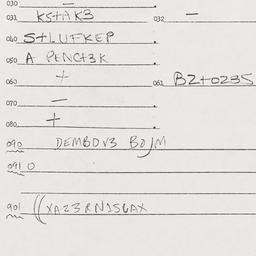 030 —
031 KSTAK3 032 —
040 S+LUFKEP
050 A PENCT3K
060 + 061 B2+0235
070 —
080 +
090 DEMBDV3 BOJM
091 0
901 ((XA23RN1S6AX